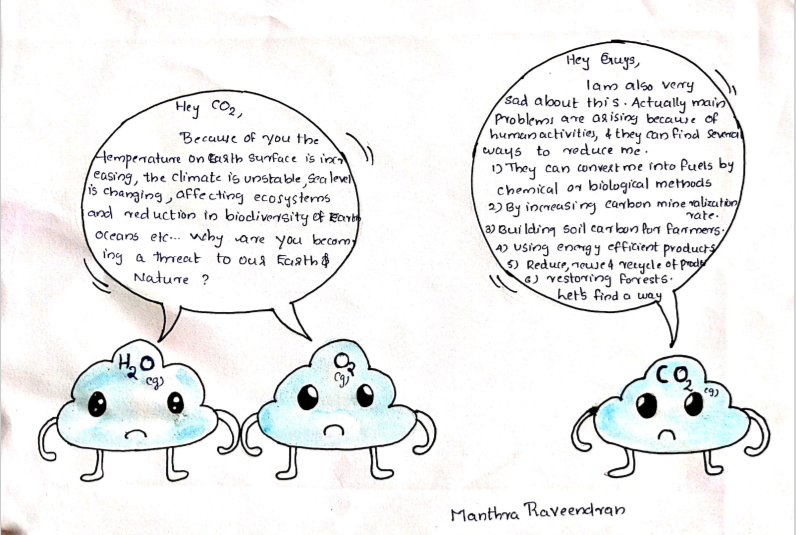 Hey CO2,
Because of you the
temperature on Earth surface is incr
easing, the climate is unstable, sea level
is changing, affecting ecosystems
and reduction in biodiversity of Earth
oceans etc... Why are you becom
ing a threat to our Earth &
Nature ?
Hey Guys,
I am also very
sad about this. Actually main
Problems are arising because of
human activities, & they can find several
ways to reduce me.
1) They can convert me into fuels by
chemical or biological methods
2) By increasing carbon mineralization
rate.
3) Building soil carbon for farmers.
4) Using energy efficient products
5) Reduce, reuse & recycle of prod
6) restoring forrests.
Let's find a way
H2O
(g)
O2
(g)
CO2
(g)
Manthra Raveendran